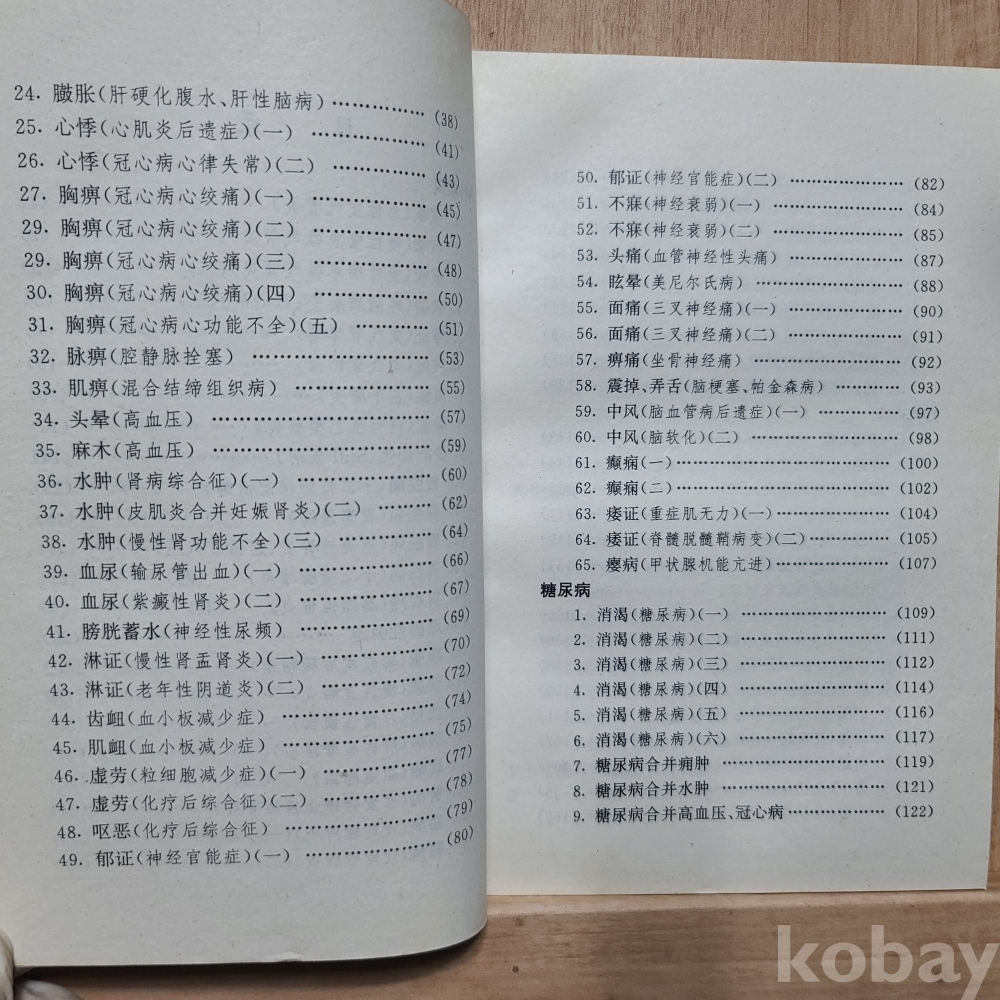 24. 臌胀(肝硬化腹水、肝性脑病) …………… (38)
25. 心悸(心肌炎后遗症)(一) …………… (41)
26. 心悸(冠心病心律失常)(二) …………… (43)
27. 胸痹(冠心病心绞痛)(一) …………… (45)
29. 胸痹(冠心病心绞痛)(二) …………… (47)
29. 胸痹(冠心病心绞痛)(三) …………… (48)
30. 胸痹(冠心病心绞痛)(四) …………… (50)
31. 胸痹(冠心病心功能不全)(五) …………… (51)
32. 脉痹(腔静脉拴塞) …………… (53)
33. 肌痹(混合结缔组织病) …………… (55)
34. 头晕(高血压) …………… (57)
35. 麻木(高血压) …………… (59)
36. 水肿(肾病综合征)(一) …………… (60)
37. 水肿(皮肌炎合并妊娠肾炎)(二) …………… (62)
38. 水肿(慢性肾功能不全)(三) …………… (64)
39. 血尿(输尿管出血)(一) …………… (66)
40. 血尿(紫癜性肾炎)(二) …………… (67)
41. 膀胱蓄水(神经性尿频) …………… (69)
42. 淋证(慢性肾盂肾炎)(一) …………… (70)
43. 淋证(老年性阴道炎)(二) …………… (72)
44. 齿衄(血小板减少症) …………… (74)
45. 肌衄(血小板减少症) …………… (75)
46. 虚劳(粒细胞减少症)(一) …………… (77)
47. 虚劳(化疗后综合征)(二) …………… (78)
48. 呕恶(化疗后综合征) …………… (79)
49. 郁证(神经官能症)(一) …………… (80)
50. 郁证(神经官能症)(二) …………… (82)
51. 不寐(神经衰弱)(一) …………… (84)
52. 不寐(神经衰弱)(二) …………… (85)
53. 头痛(血管神经性头痛) …………… (87)
54. 眩晕(美尼尔氏病) …………… (88)
55. 面痛(三叉神经痛)(一) …………… (90)
56. 面痛(三叉神经痛)(二) …………… (91)
57. 痹痛(坐骨神经痛) …………… (92)
58. 震掉、弄舌(脑梗塞、帕金森病) …………… (93)
59. 中风(脑血管病后遗症)(一) …………… (97)
60. 中风(脑软化)(二) …………… (98)
61. 癫痫(一) …………… (100)
62. 癫痫(二) …………… (102)
63. 痿证(重症肌无力)(一) …………… (104)
64. 痿证(脊髓脱髓鞘病变)(二) …………… (105)
65. 瘿病(甲状腺机能亢进) …………… (107)
糖尿病
1. 消渴(糖尿病)(一) …………… (109)
2. 消渴(糖尿病)(二) …………… (111)
3. 消渴(糖尿病)(三) …………… (112)
4. 消渴(糖尿病)(四) …………… (114)
5. 消渴(糖尿病)(五) …………… (116)
6. 消渴(糖尿病)(六) …………… (117)
7. 糖尿病合并痈肿 …………… (119)
8. 糖尿病合并水肿 …………… (121)
9. 糖尿病合并高血压、冠心病 …………… (122)
kobay